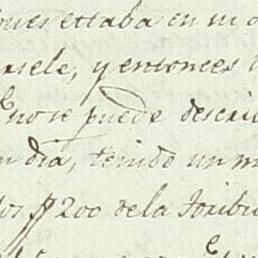 pues estaba en su
sele, y entonces
no se puede descri
n dia, tenido un m
los p 200 de la Toribi